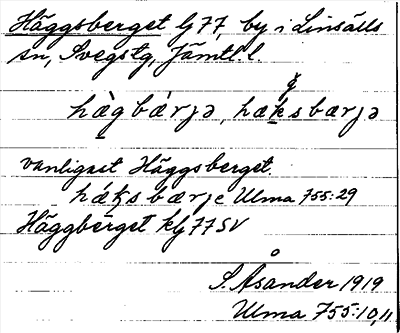 Häggsberget Gj 77, by i Linsälls
sn, Svegs tg, Jämtl. l.
hægbærjə, hæksbærjə
vanligast Häggsberget.
hæksbærje Ulma 755:29
Häggberget kg 77 SV
S. Åsander 1919
Ulma 755:10, 11